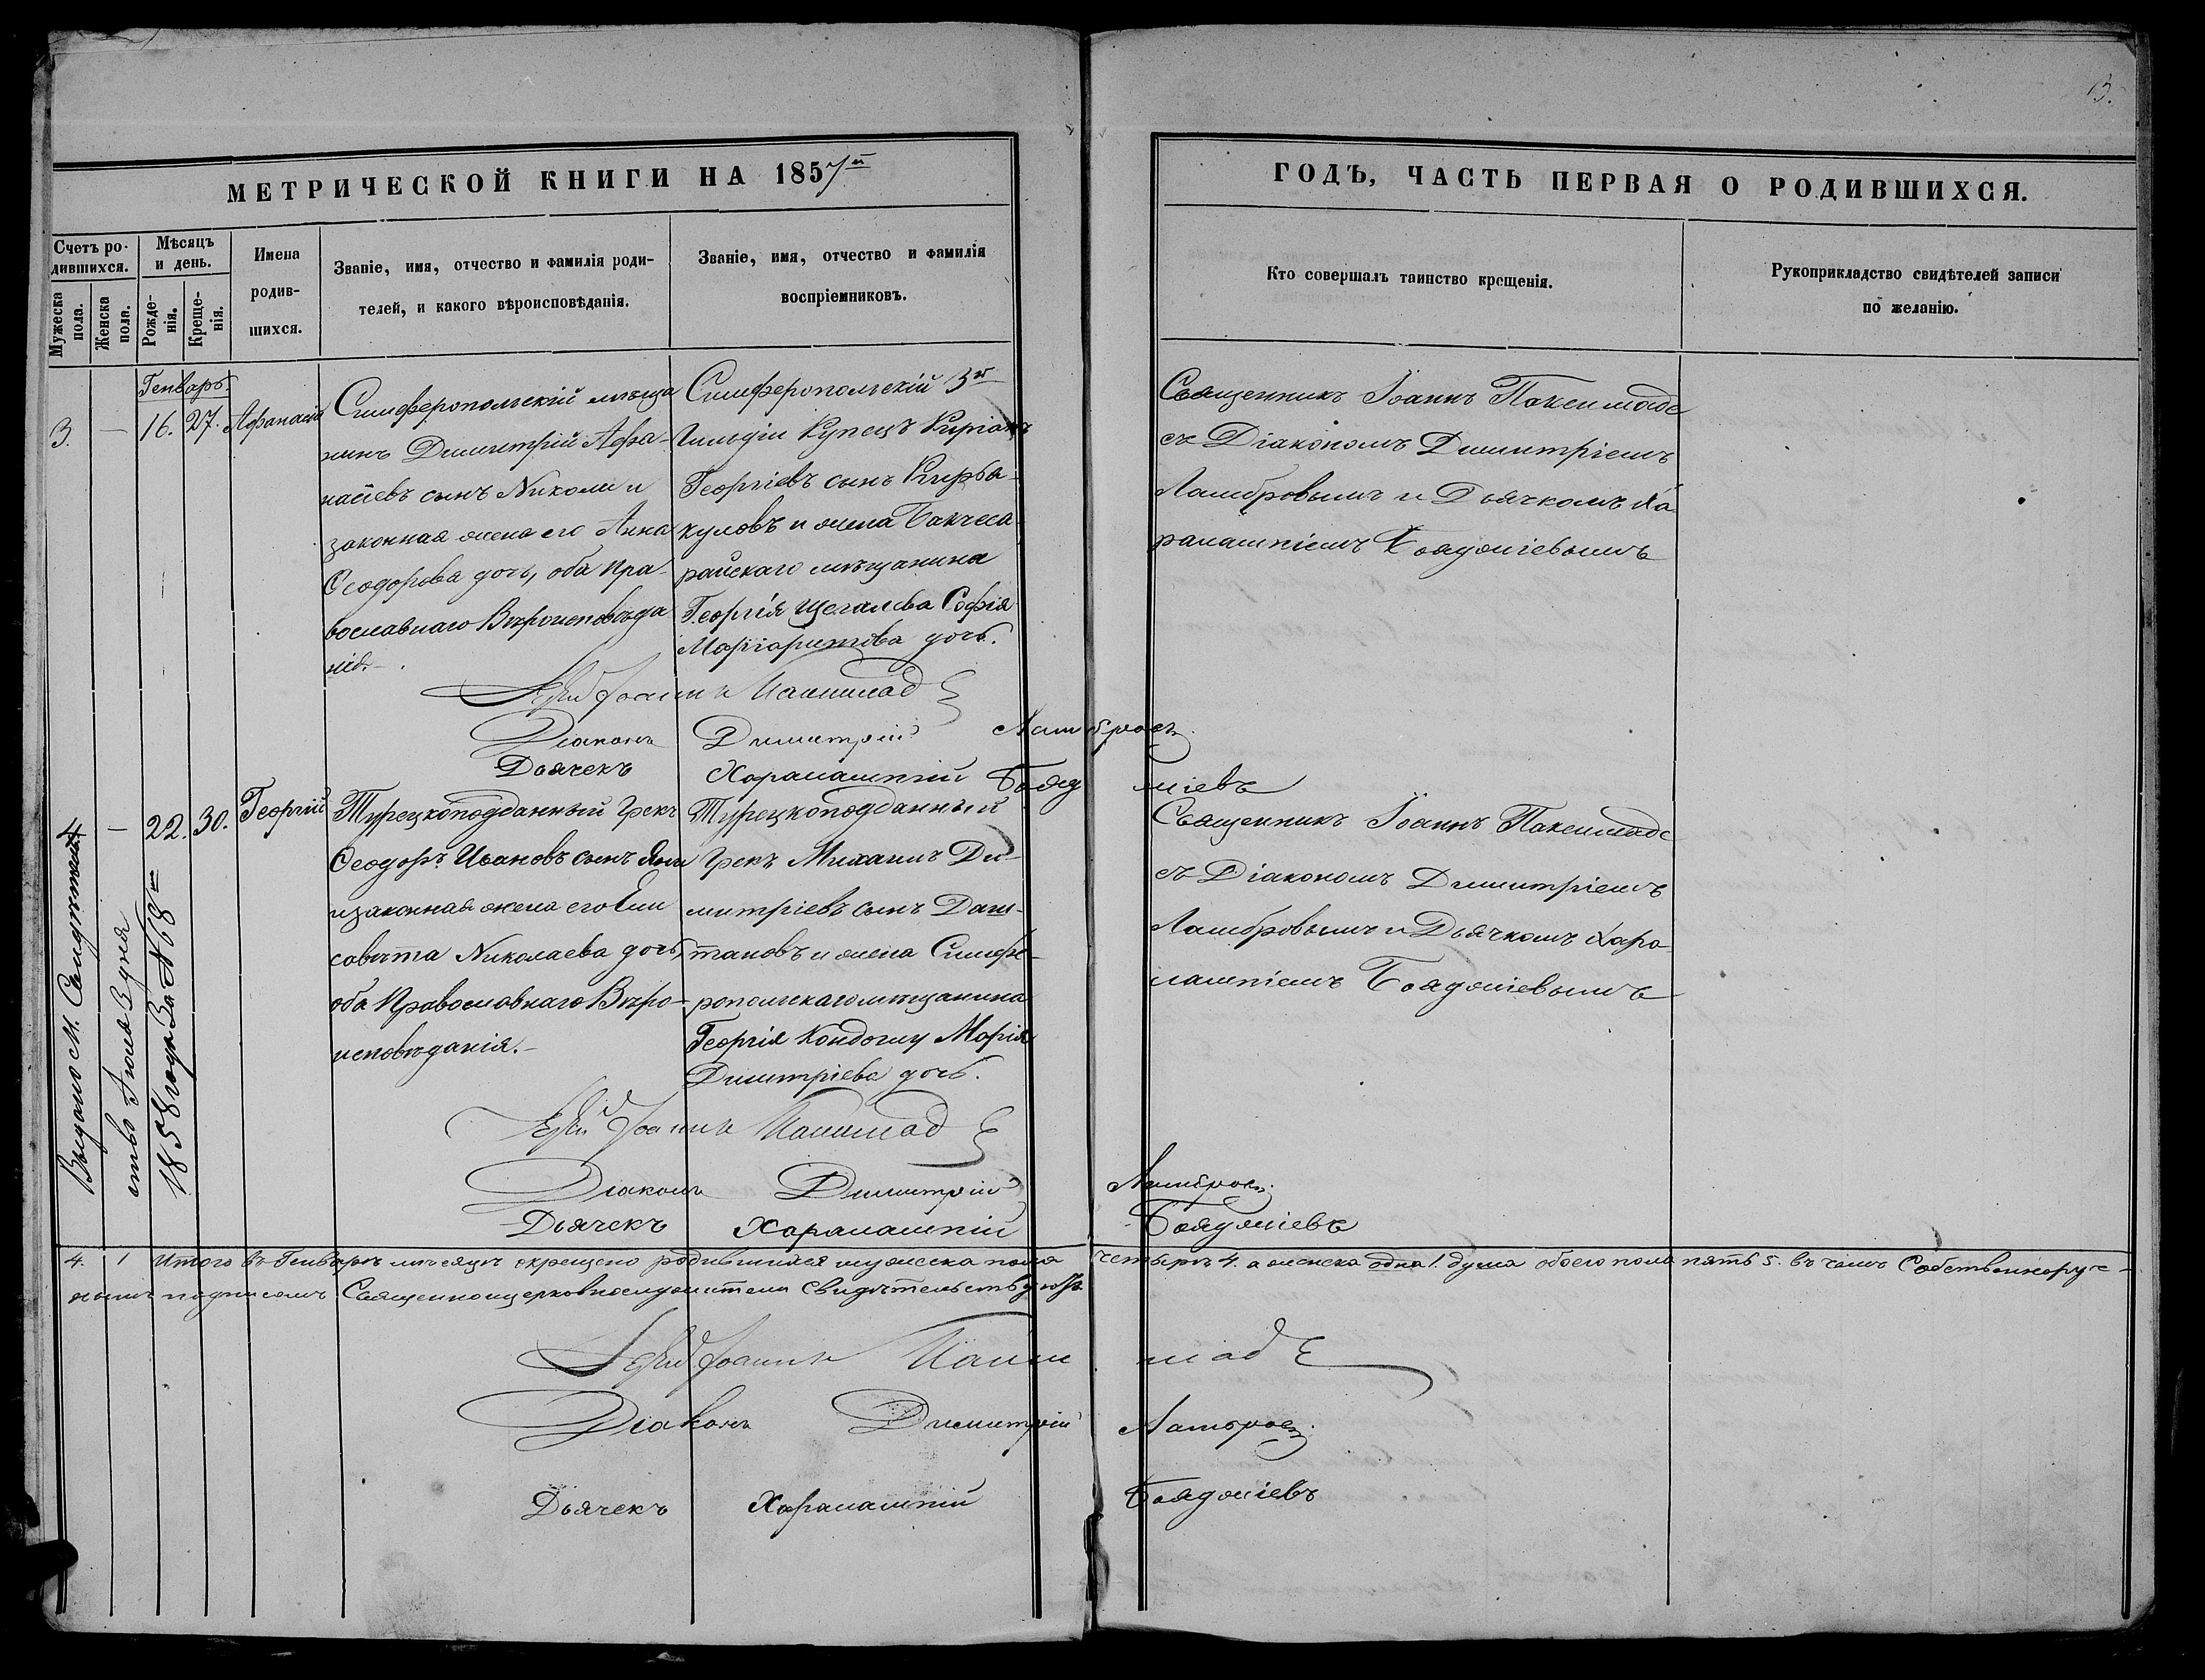 13.
МЕТРИЧЕСКОЙ КНИГИ НА 1857й
ГОДЪ, ЧАСТЬ ПЕРВАЯ О РОДИВШИХСЯ.
Счетъ ро-
дившихся.
Мужеска пола.
Женска пола.
Мѣсяцъ
и день.
Рожде-
нія.
Креще-
нія.
Имена
родив-
шихся.
Званіе, имя, отчество и фамилія роди-
телей, и какого вѣроисповѣданія.
Званіе, имя, отчество и фамилія
воспріемниковъ.
Кто совершалъ таинство крещенія.
Рукоприкладство свидѣтелей записи
по желанію.
Генварь.
3. — 16. 27. Афанасій
Симферопольскій мѣща
нинъ Димитрій Афа-
насіевъ сынъ Николи и
законная жена его Анна
Ѳеодорова дочь, оба Пра-
вославнаго Вѣроисповѣда
нія.-
Симферопольскій 3й
Гильдіи Купецъ Киріакъ
Георгіевъ сынъ
куловъ и жена Бакчеса-
райскаго мѣщанина
Георгія Щегалева Софія
Маргаритова дочь.
Священникъ Іоаннъ Паксимаде
съ Діакономъ Димитріемъ
Ламбровымъ и Дьячкомъ Ха-
ралампіемъ Бояджіевымъ
Іерей Іоаннъ Паксимаде
Діаконъ Димитрій Ламбровъ.
Дьячекъ Харалампій Бояджіевъ
4 — 22. 30. Георгій
Турецкоподданный Грекъ
Ѳеодоръ Ивановъ сынъ Яни
и законная жена его Ели
савета Николаева дочь,
оба Православнаго Вѣро-
исповѣданія.-
Турецкоподданный
Грекъ Михаилъ Ди-
митріевъ сынъ Даш-
тановъ и жена Симфе-
ропольскаго мѣщанина
Георгія Кондогли Марія
Димитріева дочь.
Священникъ Іоаннъ Паксимаде
съ Діакономъ Димитріемъ
Ламбровымъ и Дьячкомъ Хара-
лампіемъ Бояджіевымъ
Выдано М. Свидѣтель
ство Іюля 3 дня
1858 года За № 68м
Іерей Іоаннъ Паксимаде
Діаконъ Димитрій Ламбровъ.
Дьячекъ Харалампій Бояджіевъ
4. 1 Итого въ Генварѣ мѣсяцѣ окрещено родившихся мужеска пола четыре 4. а женска одна 1. душа обоего пола пять 5. въ чемъ Собственноруч-
нымъ подписомъ Священноцерковнослужители Свидѣтельствуютъ
Іерей Іоаннъ Паксимаде
Діаконъ Димитрій Ламбровъ.
Дьячекъ Харалампій Бояджіевъ